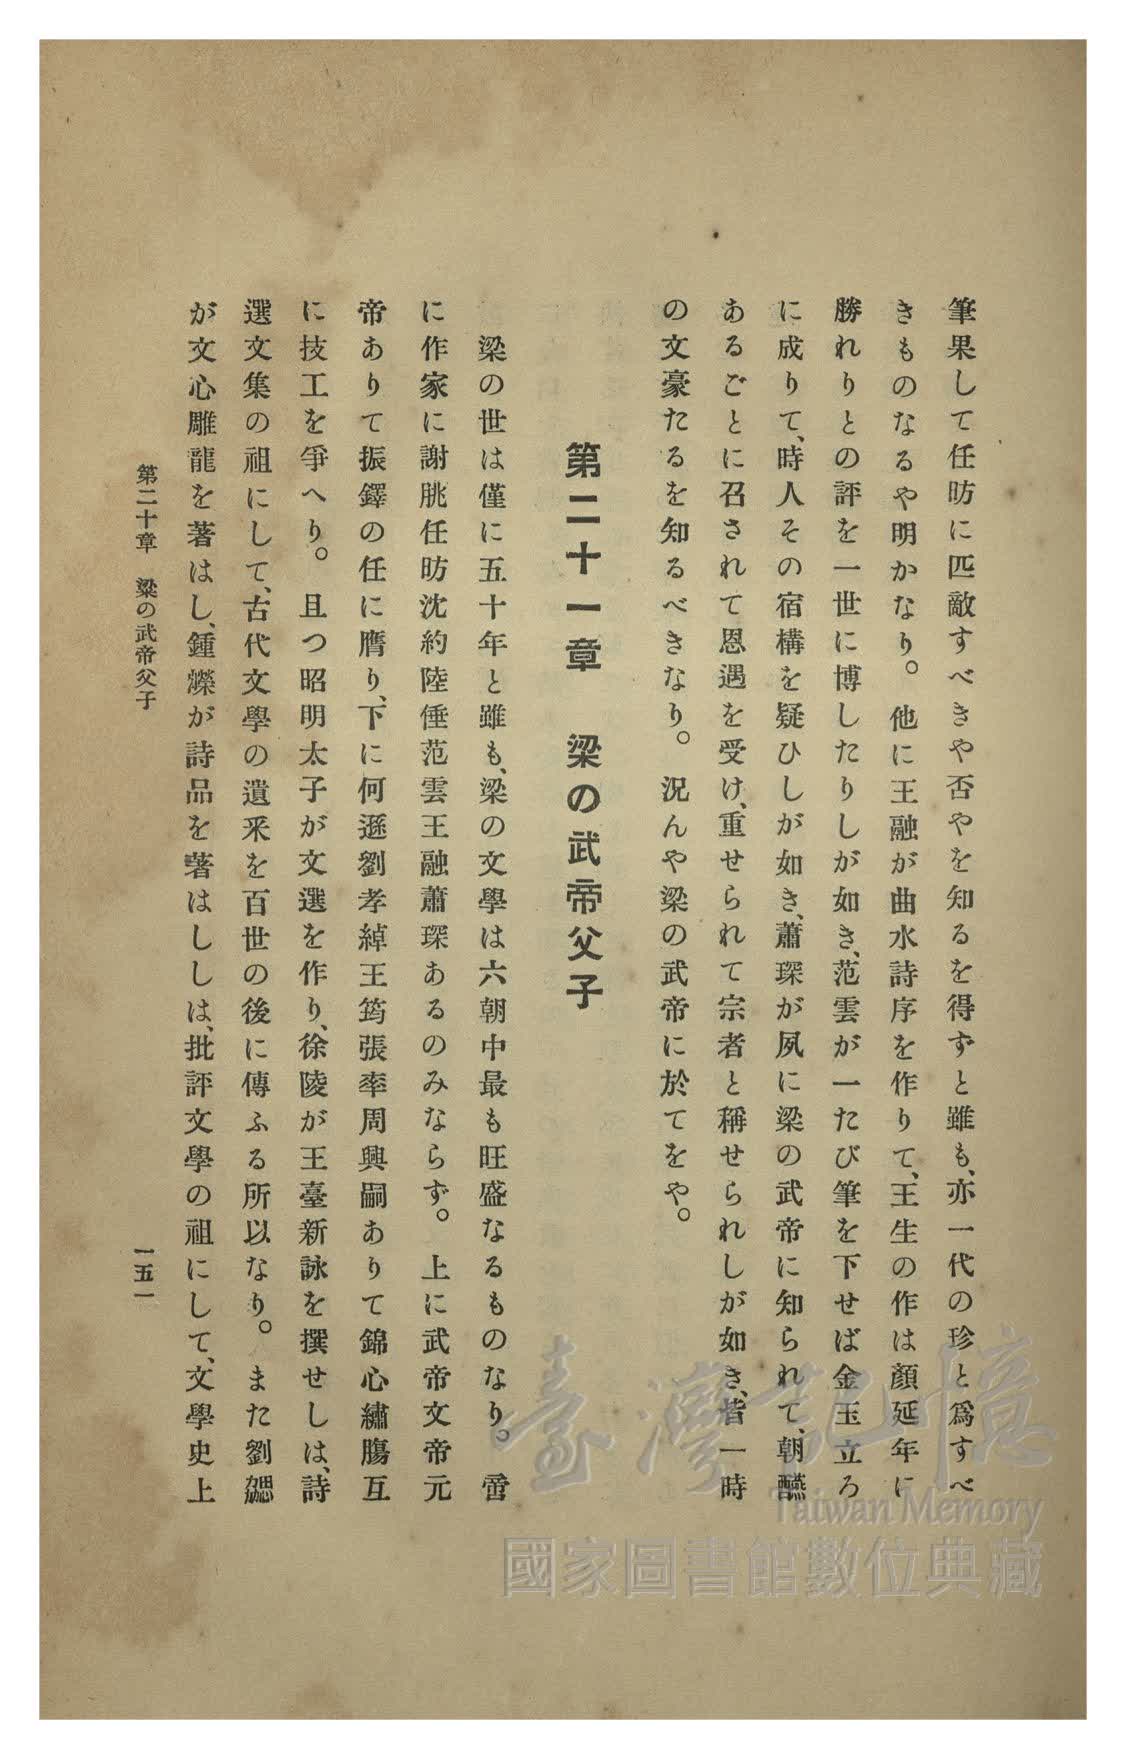 筆果して任昉に匹敵すべきや否やを知るを得ずと雖も、亦一代の珍と爲すべ
きものなるや明かなり。他に王融が曲水詩序を作りて、王生の作は顏延年に
勝れりとの評を一世に博したりしが如き、范雲が一たび筆を下せば金玉立ろ
に成りて、時人その宿構を疑ひしが如き、蕭琛が夙に梁の武帝に知られて、朝醼
あるごとに召されて恩遇を受け、重せられて宗者と稱せられしが如き、皆一時
の文豪たるを知るべきなり。況んや梁の武帝に於てをや。
第二十一章　梁の武帝父子
梁の世は僅に五十年と雖も、梁の文學は六朝中最も旺盛なるものなり。啻
に作家に謝朓任昉沈約陸倕范雲王融蕭琛あるのみならず。上に武帝文帝元
帝ありて振鐸の任に膺り、下に何遜劉孝綽王筠張率周興嗣ありて錦心繡膓互
に技工を爭へり。且つ昭明太子が文選を作り、徐陵が王臺新詠を撰せしは、詩
選文集の祖にして、古代文學の遺釆を百世の後に傳ふる所以なり。また劉勰
が文心雕龍を著はし、鍾爍が詩品を著はししは、批評文學の祖にして、文學史上
第二十章　梁の武帝父子
一五一
臺灣記憶
Taiwan Memory
國家圖書館數位典藏